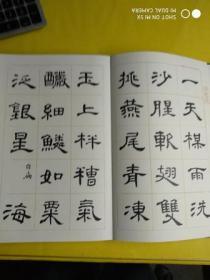 SHOT ON MI 5X
MI DUAL CAMERA
一天楳雨洗
沙腥軟翅雙
挑燕尾青凍
玉上柈糟氣
釅細鱗如粟
泛銀星
海